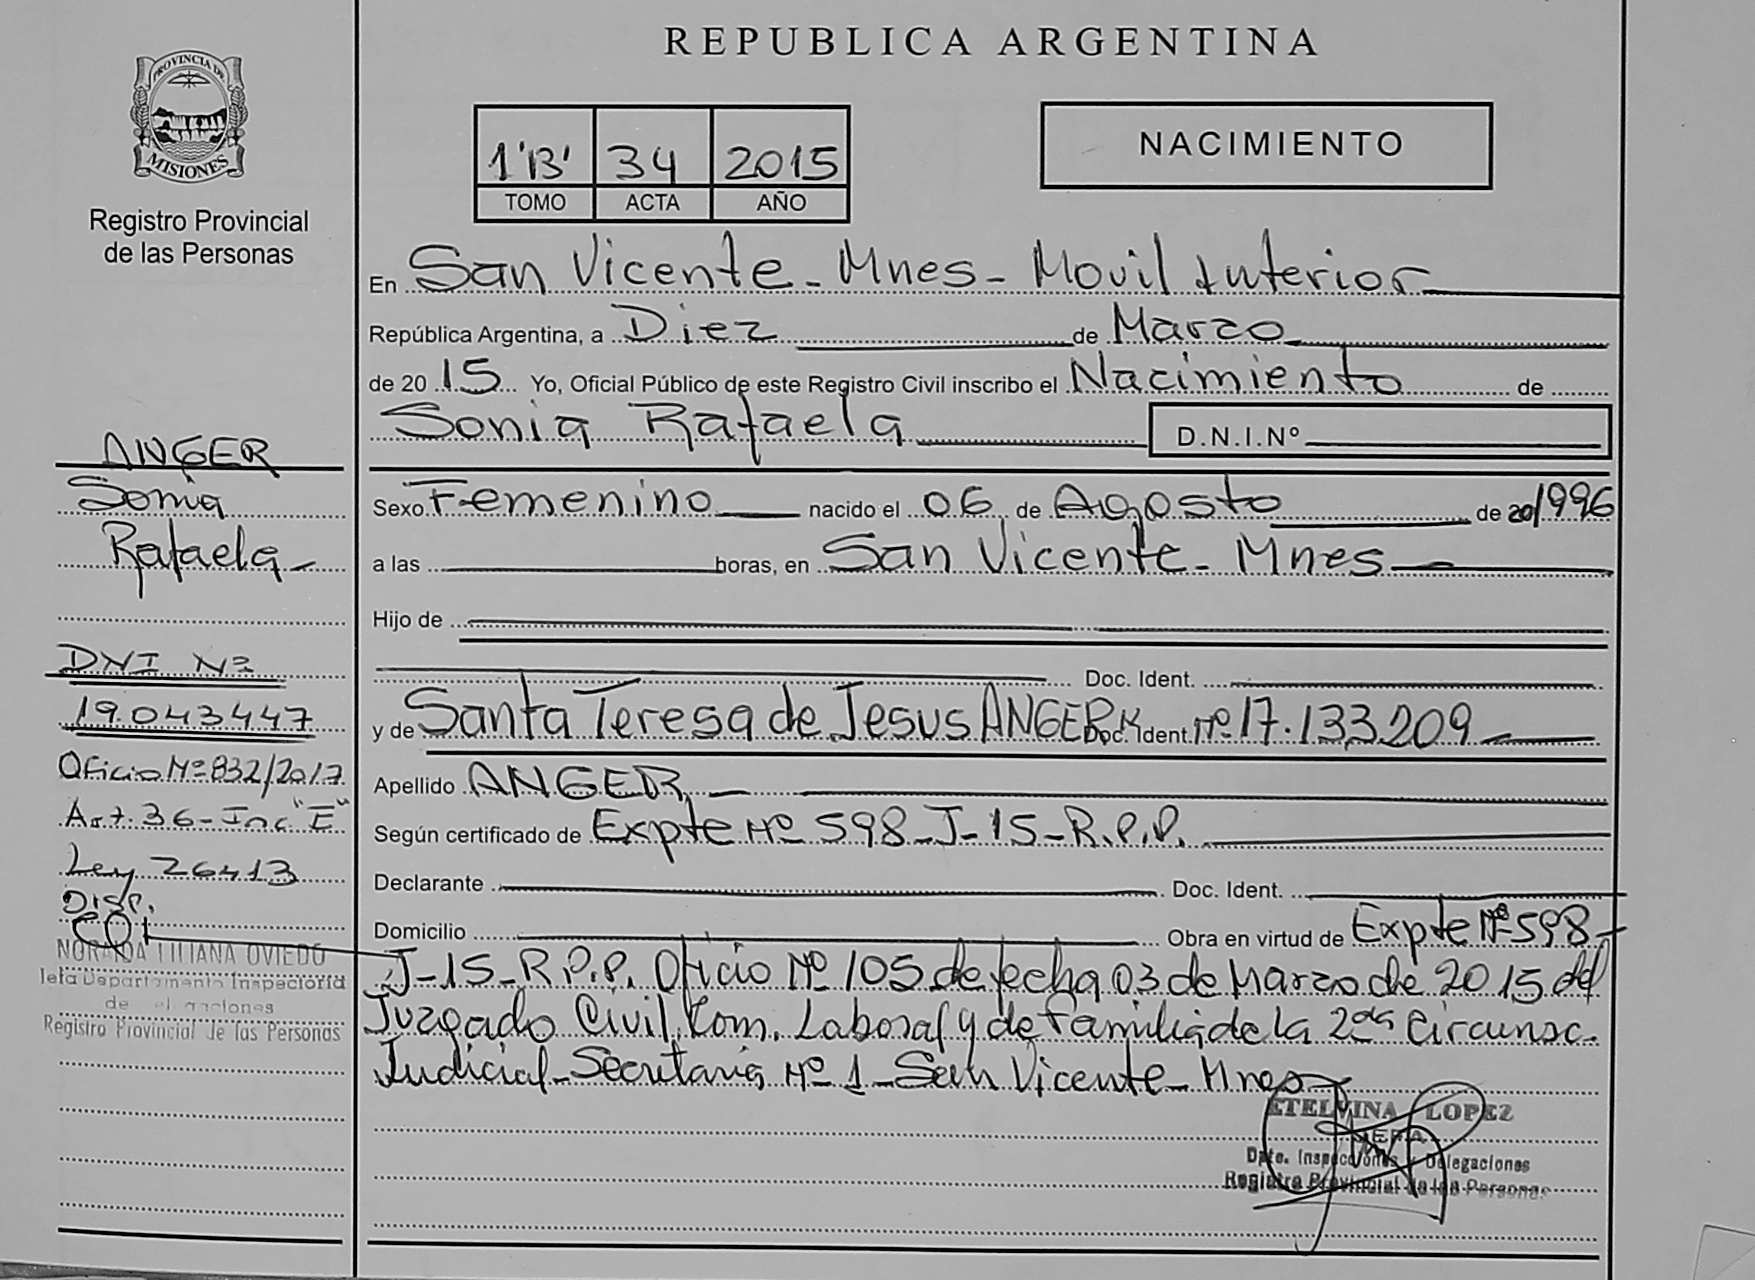 REPUBLICA ARGENTINA
PROVINCIA DE
MISIONES
Registro Provincial
de las Personas
1 "B" 34 2015
TOMO ACTA AÑO
NACIMIENTO
En San Vicente - Mnes - Movil Interior
República Argentina, a Diez de Marzo
de 20 15 Yo, Oficial Público de este Registro Civil inscribo el Nacimiento de
Sonia Rafaela D.N.I.Nº
Sexo Femenino nacido el 06 de Agosto de 20 1996
a las horas, en San Vicente - Mnes
Hijo de
Doc. Ident.
y de Santa Teresa de Jesus ANGER Doc. Ident. Nº 17.133.209
Apellido ANGER
Según certificado de Expte Nº 598-J-15-R.P.P.
Declarante Doc. Ident.
Domicilio Obra en virtud de Expte Nº 598-
J-15-R.P.P. Oficio Nº 105 de fecha 03 de Marzo de 2015 del
Juzgado Civil, Com. Laboral y de familia de la 2da Circunsc.
Judicial - Secretaria Nº 1 - San Vicente - Mnes
ETELVINA LOPEZ
JEFA
Dpto. Inspecciones y Delegaciones
Registro Provincial de las Personas
ANGER
Sonia
Rafaela
DNI Nº
19.043.447
Oficio Nº 832/2017
Art. 36 - Inc "E"
Ley 26413
Disp.
LILIANA OVIEDO
Jefa Departamento Inspectoria
de
Registro Provincial de las Personas